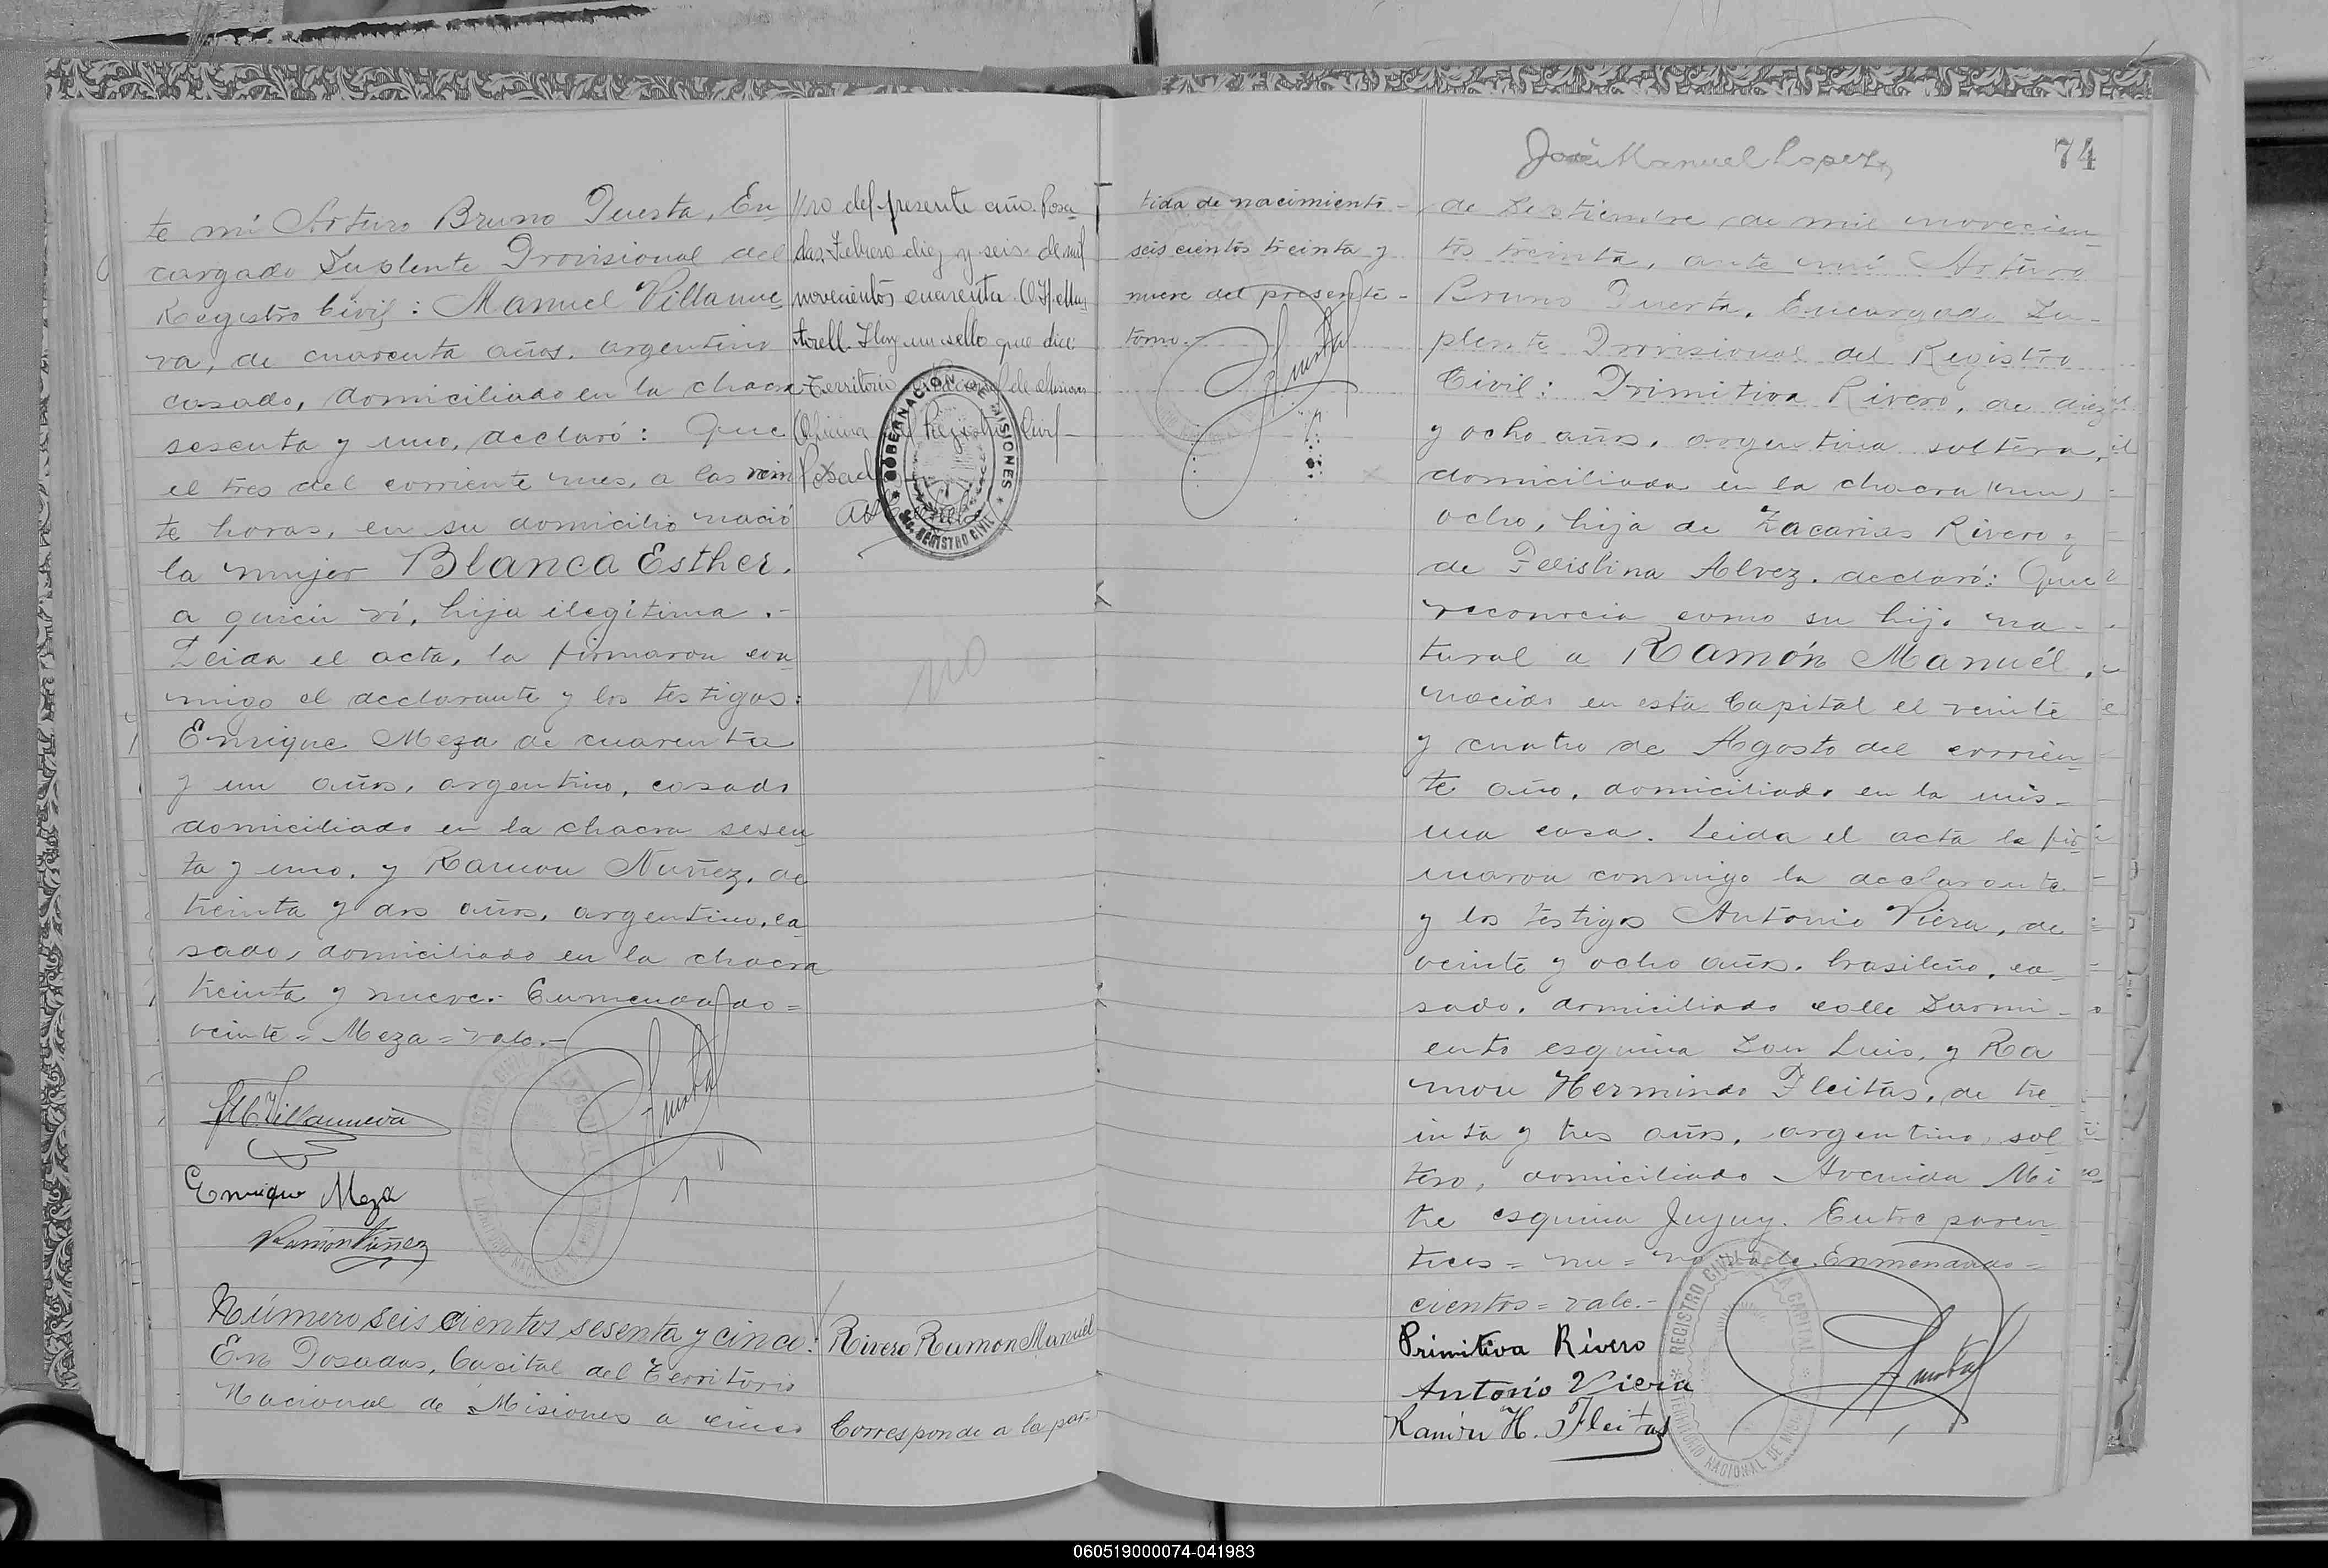 te mi Arturo Bruno Puerta, En
cargado Suplente Provisional del
Registro Civil: Manuel Villanue
va, de cuarenta años, argentino
casado, domiciliado en la chacra
sesenta y uno, declaró: Que
el tres del corriente mes, a las vein
te horas, en su domicilio nació
la mujer Blanca Esther.
a quien ví, hija ilegítima.-
Leida el acta, la firmaron con
migo el declarante y los testigos:
Enrique Meza de cuarenta
y un años, argentino, casado
domiciliado en la chacra sesen
ta y uno, y Ramon Nuñez, de
treinta y dos años, argentino, ca
sado, domiciliado en la chacra
treinta y nueve.- Enmendado=
veinte = Meza = vale.-
M C Villanueva
Enrique Meza
Ramón Núñez
Número seis cientos sesenta y cinco:
En Posadas, Capital del Territorio
Nacional de Misiones a cinco
ro del presente año. Posa
das, Febrero diez y seis de mil
novecientos cuarenta.
torell. Hay un sello que dice:
Territorio Nacional de Misiones
Oficina del Registro Civil
Posad
GOBERNACION DE MISIONES
REGISTRO CIVIL
no
Rivero Ramon Manuél
Corresponde a la par-
tida de nacimiento-
seis cientos treinta y
nueve del presente-
tomo.-
José Manuel Lopez
74
de Septiembre de mil novecien
tos treinta, ante mí Arturo
Bruno Puerta, Encargado Su-
plente Provisional del Registro
Civil: Primitiva Rivero, de diez
y ocho años, argentina soltera,
domiciliada en la chacra (nu)
ocho, hija de Zacarias Rivero y
de Felisbina Alvez, declaró: Que
reconocia como su hijo na-
tural a Ramón Manuél,
nacido en esta Capital el veinte
y cuatro de Agosto del corrien
te año, domiciliado en la mis-
ma casa. Leida el acta la fir
maron conmigo la declarante
y los testigos Antonio Viera, de
veinte y ocho años, brasileño, ca-
sado, domiciliado calle Sarmi-
ento esquina San Luis, y Ra
mon Hermindo Fleitas, de tre-
inta y tres años, argentino, sol
tero, domiciliado Avenida Mi
tre esquina Jujuy. Entre paren
tices = nu = no vale. Enmendado=
cientos = vale.-
Primitiva Rivero
Antonio Viera
Ramón H. Fleitas
REGISTRO CIVIL DE LA CAPITAL
TERRITORIO NACIONAL DE MISIONES
060519000074-041983